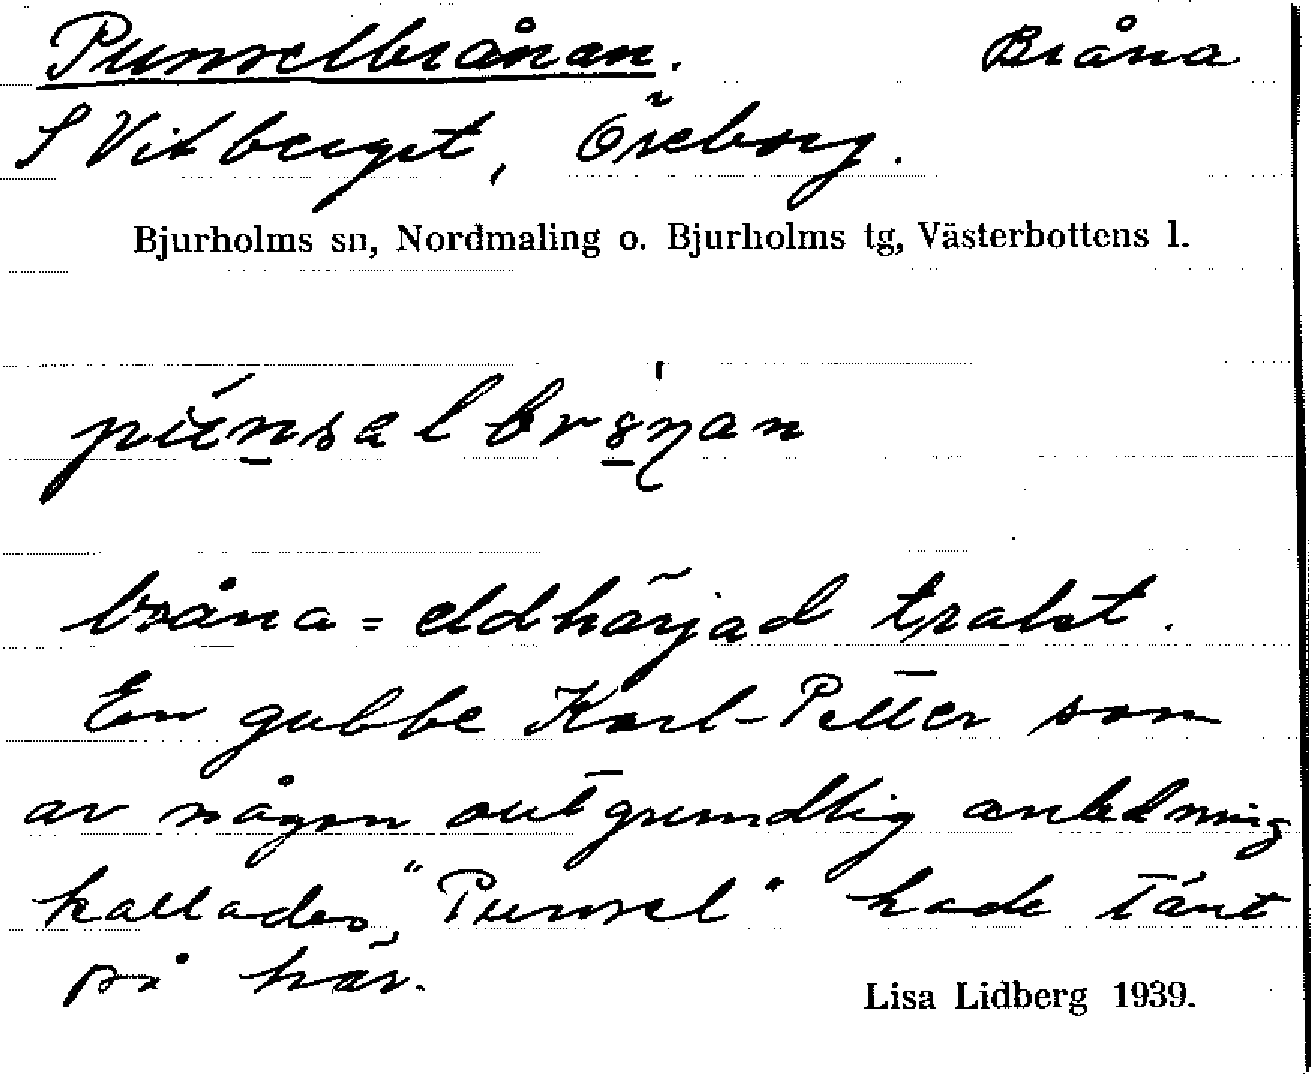 Punselbrånan. Bråna
S Vitberget, Öreborg.
Bjurholms sn, Nordmaling o. Bjurholms tg, Västerbottens l.
bråna = eldhärjad trakt.
En gubbe Karl-Petter som
av någon outgrundlig anledning
kallades "Punsel" hade tänt
på här.
Lisa Lidberg 1939.